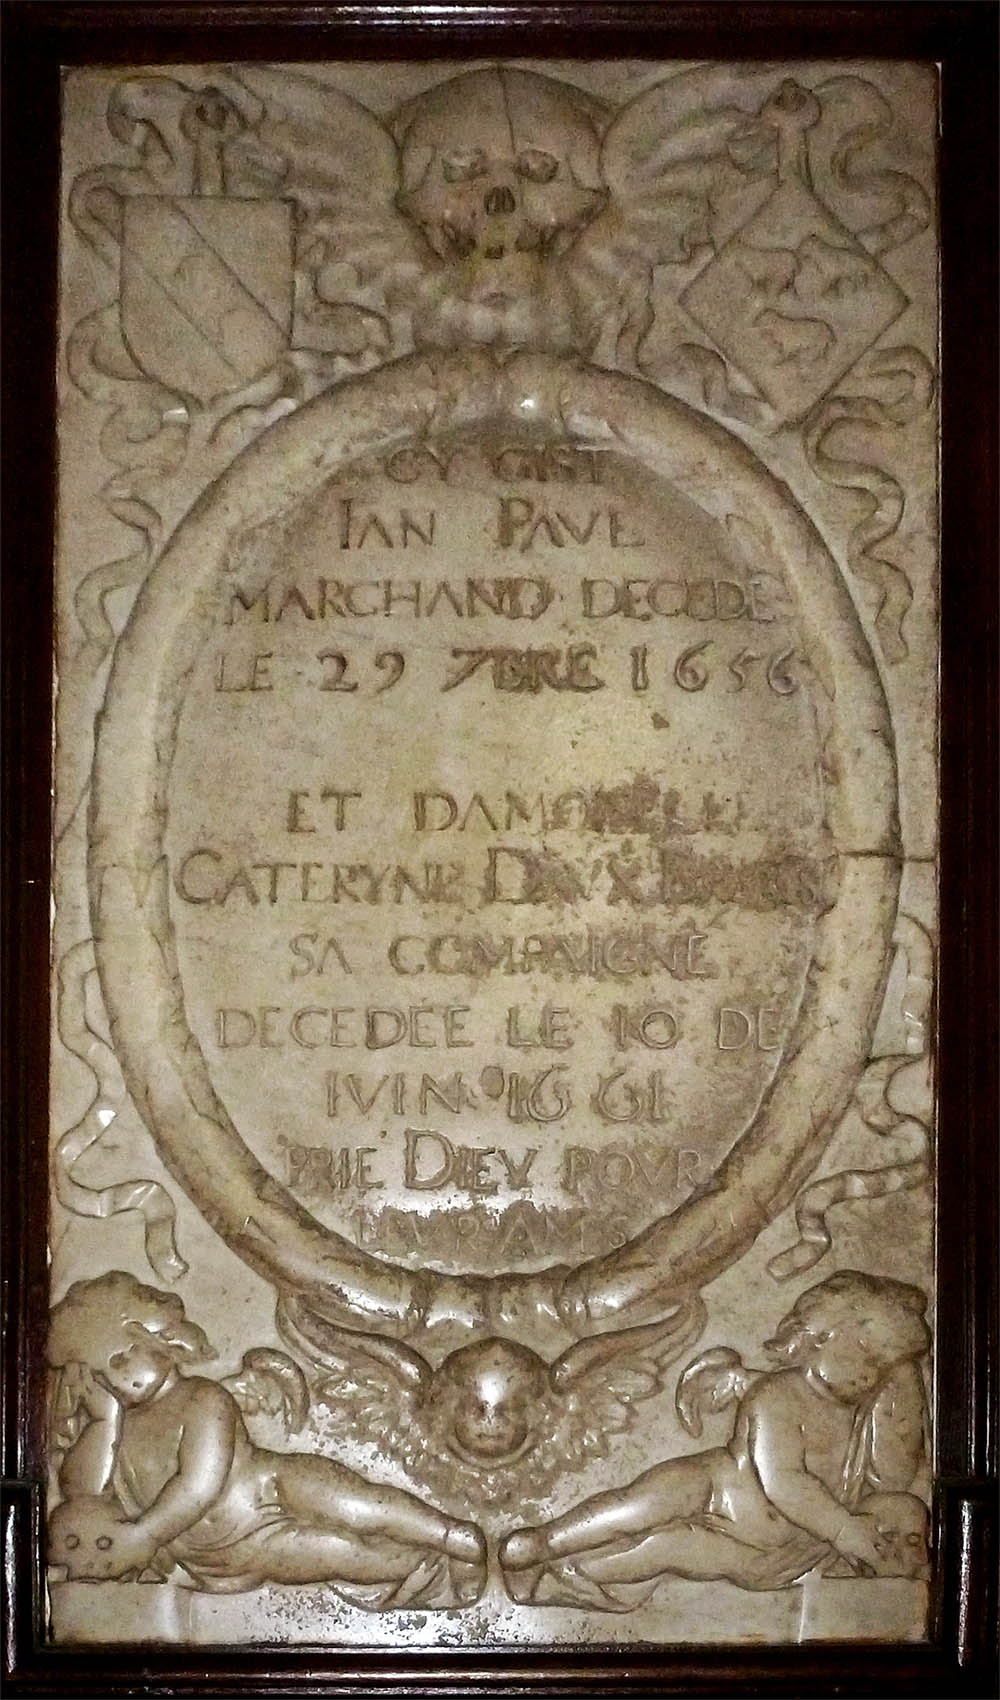 CY GIST
IAN PAVE
MARCHAND DECEDE
LE 29 7BRE 1656
ET DAMOISELLE
CATERYNE DAVX
SA COMPAIGNE
DECEDEE LE 10 DE
IVIN 1661
PRIE DIEV POVR
LEVR AMES